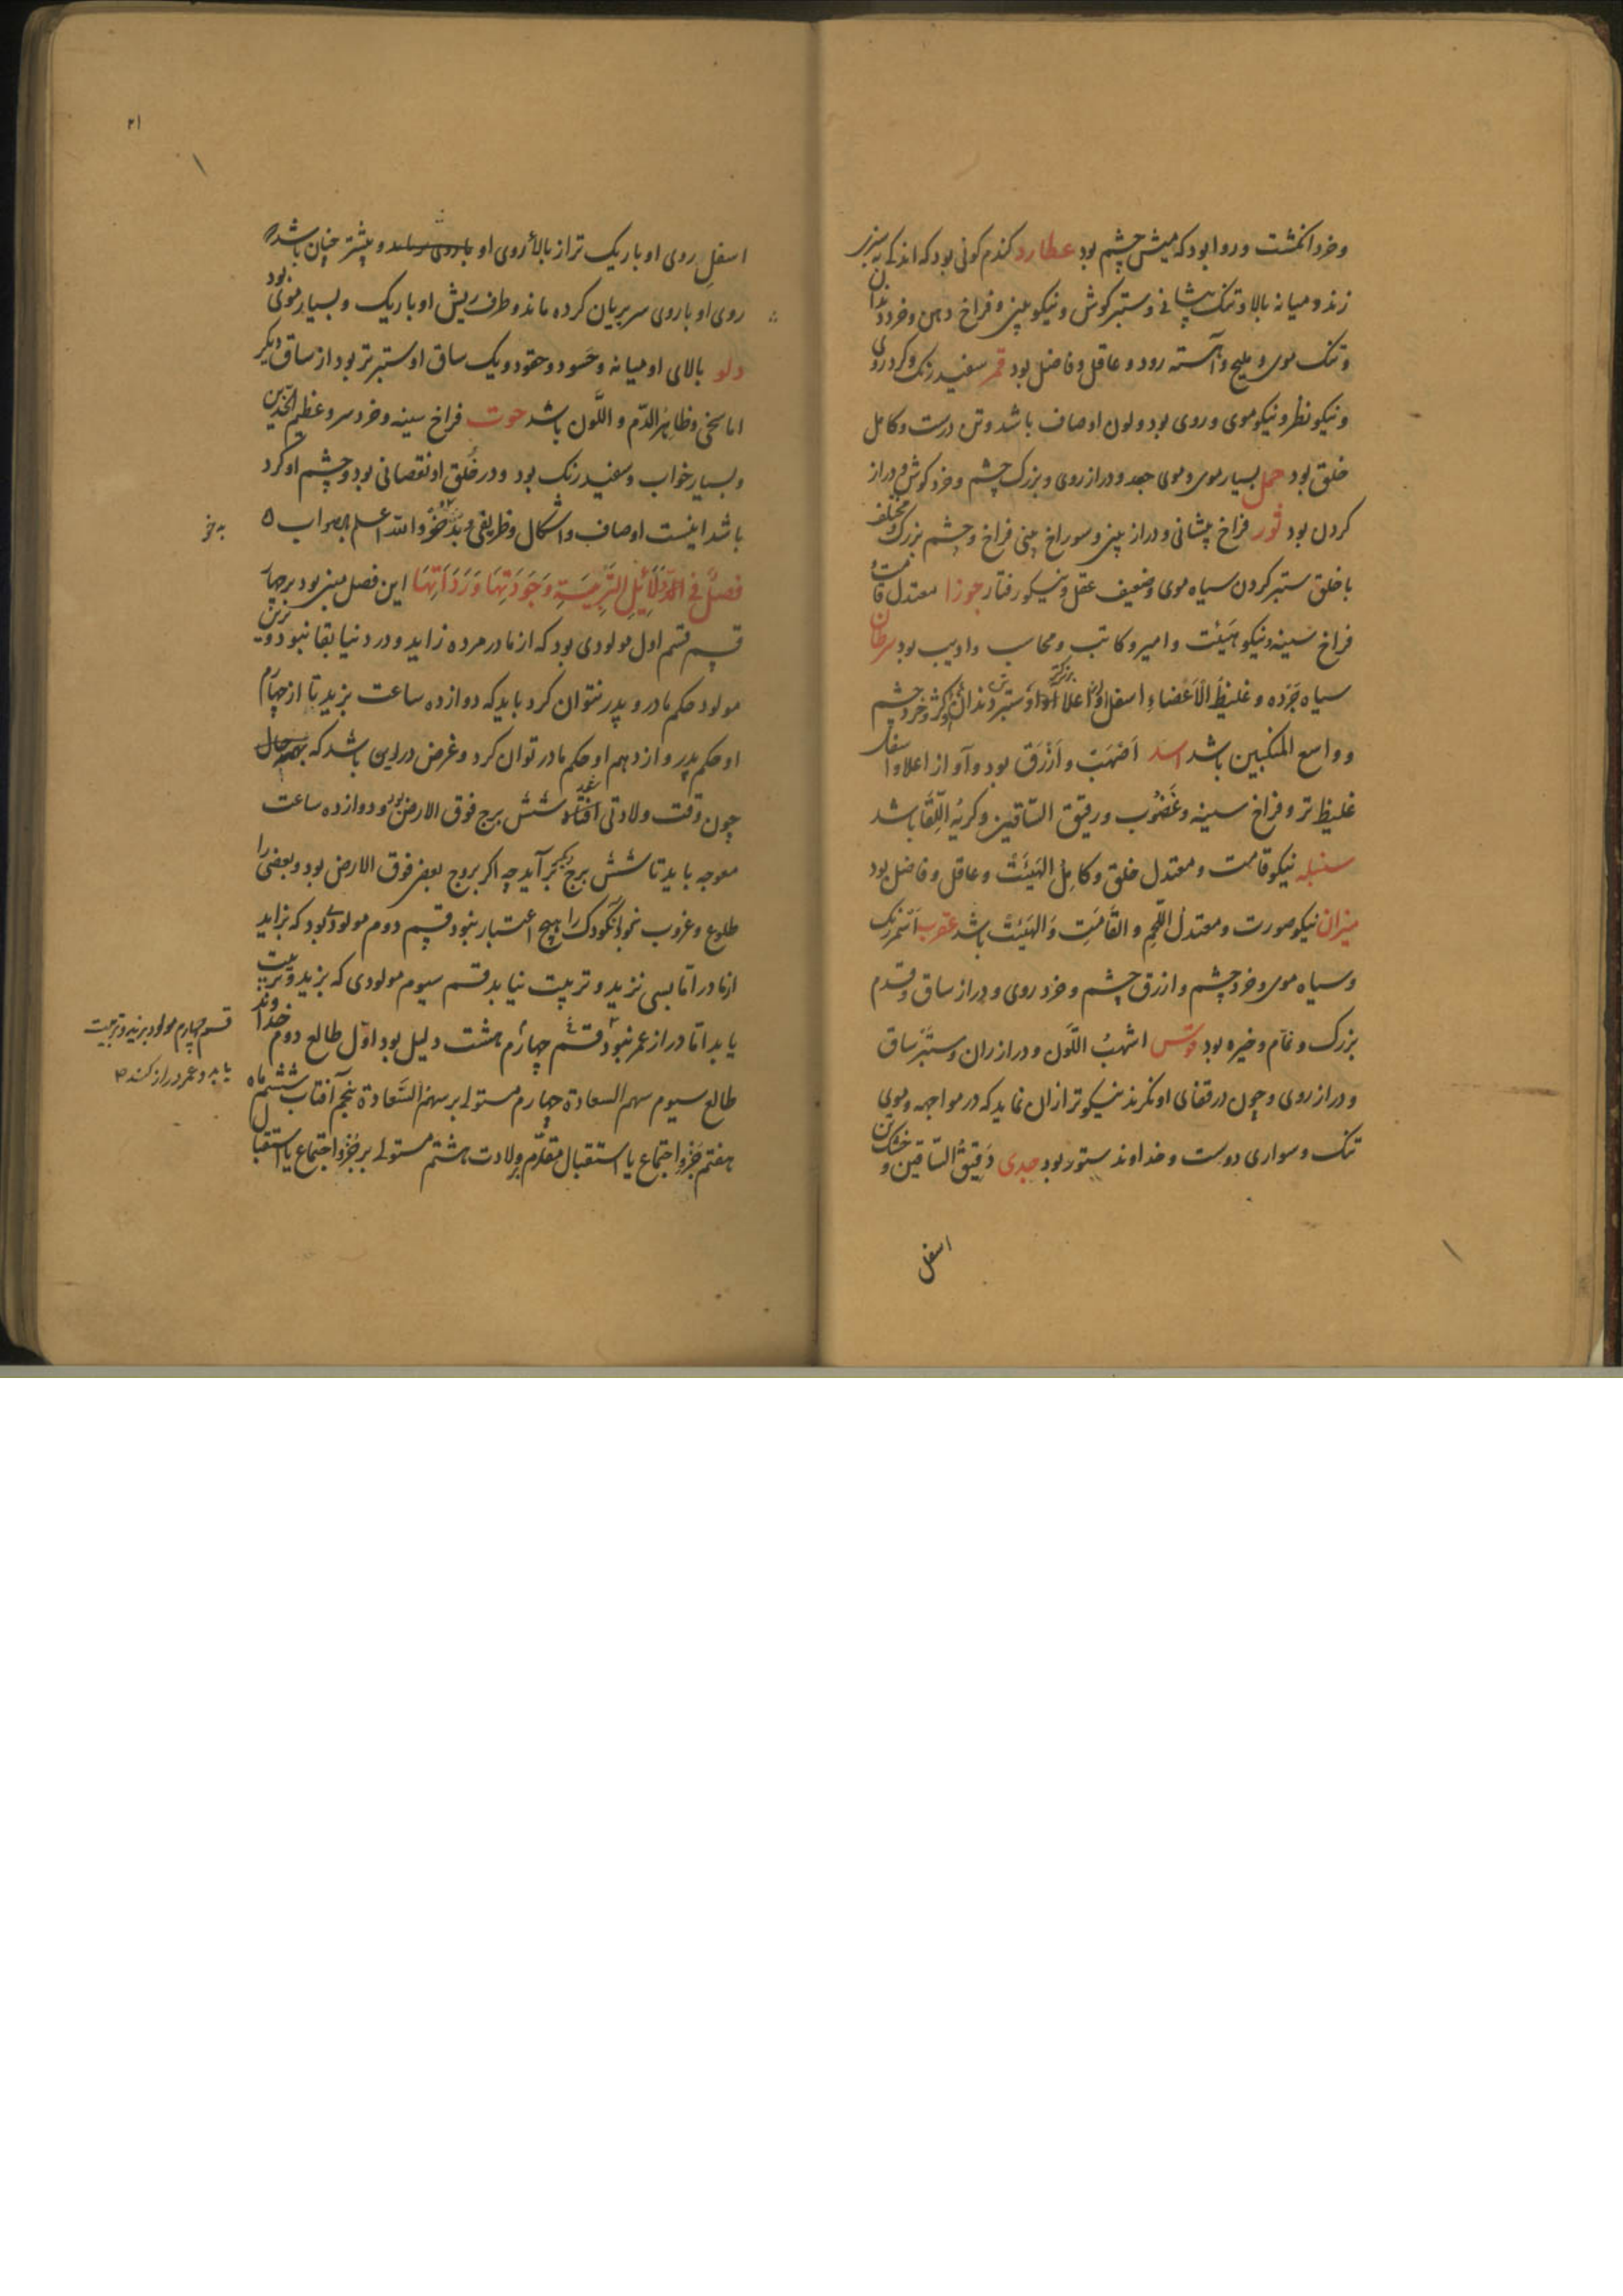 وخرد انکشت وروا بود که میش چشم بود عطارد کندم کونی بود که اندکی به سبزی
زند ومیانه بالا وتنک پیشانی وستبر کوش ونیکو بینی وفراخ دهن وخرد دندان
وتنک موی وملیح وآهسته رود وعاقل وفاضل بود قمر سفید رنک وکرد روی
ونیکو نظر ونیکو موی وروی بود ولون او صاف باشد وتن درست وکامل
خلق بود حمل بسیار موی وموی جعد ودراز روی وبزرک چشم وخرد کوش ودراز
کردن بود ثور فراخ پیشانی ودراز بینی وسوراخ بینی فراخ وچشم بزرک ومختلف
با خلق ستبر کردن سیاه موی وضعیف عقل ونیکو رفتار جوزا معتدل قامت
فراخ سینه ونیکو هیئت وامیر وکاتب ومحاسب وادیب بود سرطان
سیاه جرده وغلیظ الاعضاء اسفل او از اعلا او ستبرتر دندان کژ وخرد چشم
وواسع المنکبین باشد اسد اصهب وازرق بود وآواز اعلا واسفل
غلیظ تر وفراخ سینه وغضوب ورقیق الساقین وکریه اللقا باشد
سنبله نیکو قامت ومعتدل خلق وکامل الهیئت وعاقل وفاضل بود
میزان نیکو صورت ومعتدل اللحم والقامت والهیئت باشد عقرب اسمر رنک
وسیاه موی وخرد چشم وازرق چشم وخرد روی ودراز ساق وقدم
بزرک ونمام وخیره بود قوس اشهب اللون ودراز ران وستبر ساق
ودراز روی وچون در قفای او نکرند نیکوتر از ان نماید که در مواجهه وموی
تنک وسواری دوست وخداوند ستور بود جدی رقیق الساقین وخشک تن
اسفل
۲۱
اسفل روی او باریک تر از بالاء روی او وبیشتر چنان باشد که
روی او با روی سر بریان کرده ماند وطرف ریش او باریک وبسیار موی بود
دلو بالای او میانه وحسود وحقود ویک ساق او ستبرتر بود از ساق دیکر
اما سخی وظاهر الدم واللون باشد حوت فراخ سینه وخرد سر وعظیم الخدین
وبسیار خواب وسفید رنک بود ودر خلق او نقصانی بود وچشم او کرد
باشد اینست اوصاف واشکال وظریفی والله اعلم بالصواب
فصل فی الدلائل التربیة وجودتها وردائتها این فصل مبنی بود بر چهار
قسم قسم اول مولودی بود که از مادر مرده زاید ودر دنیا بقا نبود
مولود حکم مادر وپدر نتوان کرد باید که دوازده ساعت بزید تا از چهارم
او حکم پدر واز دهم او حکم مادر توان کرد وغرض در این باشد که
چون وقت ولادتی افتد شش برج فوق الارض بود ودوازده ساعت
معوجه باید تا شش برج دیکر برآید چه اکر بروج بعضی فوق الارض بود وبعضی را
طلوع وغروب نبود آن کودک را هیچ اعتبار نبود قسم دوم مولودی بود که بزاید
از مادر اما بسی نزید وتربیت نیابد قسم سیوم مولودی که بزید وتربیت
یابد اما دراز عمر نبود قسم چهارم هشت دلیل بود اول طالع دوم خداوند
طالع سیوم سهم السعادة چهارم مستولی بر سهم السعادة پنجم آفتاب ششم ماه
هفتم جزو اجتماع یا استقبال مقدم بر ولادت هشتم مستولی بر جزو اجتماع یا استقبال
به خو
قسم چهارم مولود بزید وتربیت
یابد وعمر دراز کند